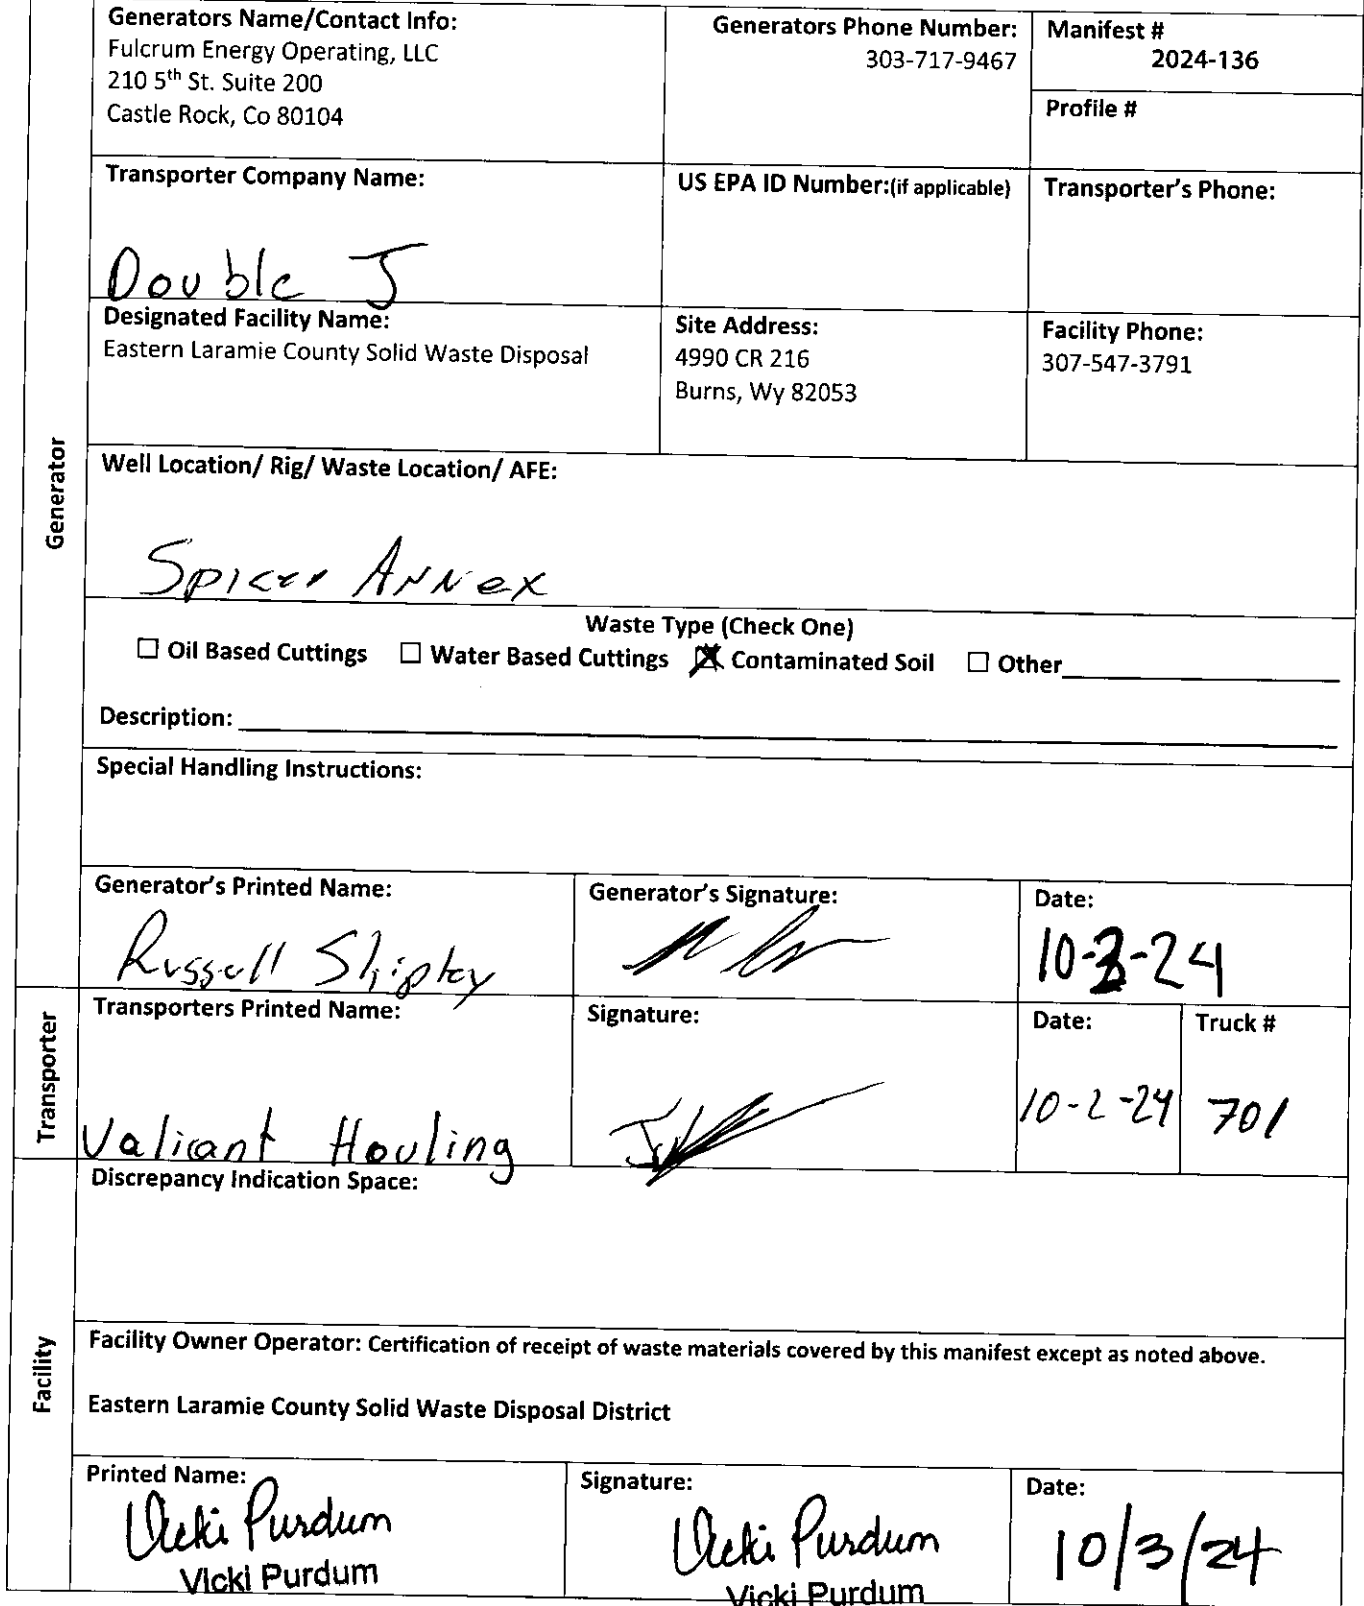 Generators Name/Contact Info:
Fulcrum Energy Operating, LLC
210 5th St. Suite 200
Castle Rock, Co 80104
Generators Phone Number:
303-717-9467
Manifest #
2024-136
Profile #
Transporter Company Name:
Double J
US EPA ID Number:(if applicable)
Transporter's Phone:
Designated Facility Name:
Eastern Laramie County Solid Waste Disposal
Site Address:
4990 CR 216
Burns, Wy 82053
Facility Phone:
307-547-3791
Generator
Well Location/ Rig/ Waste Location/ AFE:
Spicer Annex
Waste Type (Check One)
☐ Oil Based Cuttings ☐ Water Based Cuttings ☒ Contaminated Soil ☐ Other
Description:
Special Handling Instructions:
Generator's Printed Name:
Russell Shipley
Generator's Signature:
Date:
10-3-24
Transporter
Transporters Printed Name:
Valicant Houling
Signature:
Date:
10-2-24
Truck #
701
Facility
Discrepancy Indication Space:
Facility Owner Operator: Certification of receipt of waste materials covered by this manifest except as noted above.
Eastern Laramie County Solid Waste Disposal District
Printed Name:
Vicki Purdum
Vicki Purdum
Signature:
Vicki Purdum
Vicki Purdum
Date:
10/3/24